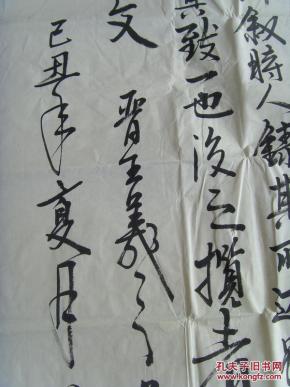 叙時人錄其所述
其致一也後之攬者
文
晋王羲之
己丑年夏月
孔夫子旧书网